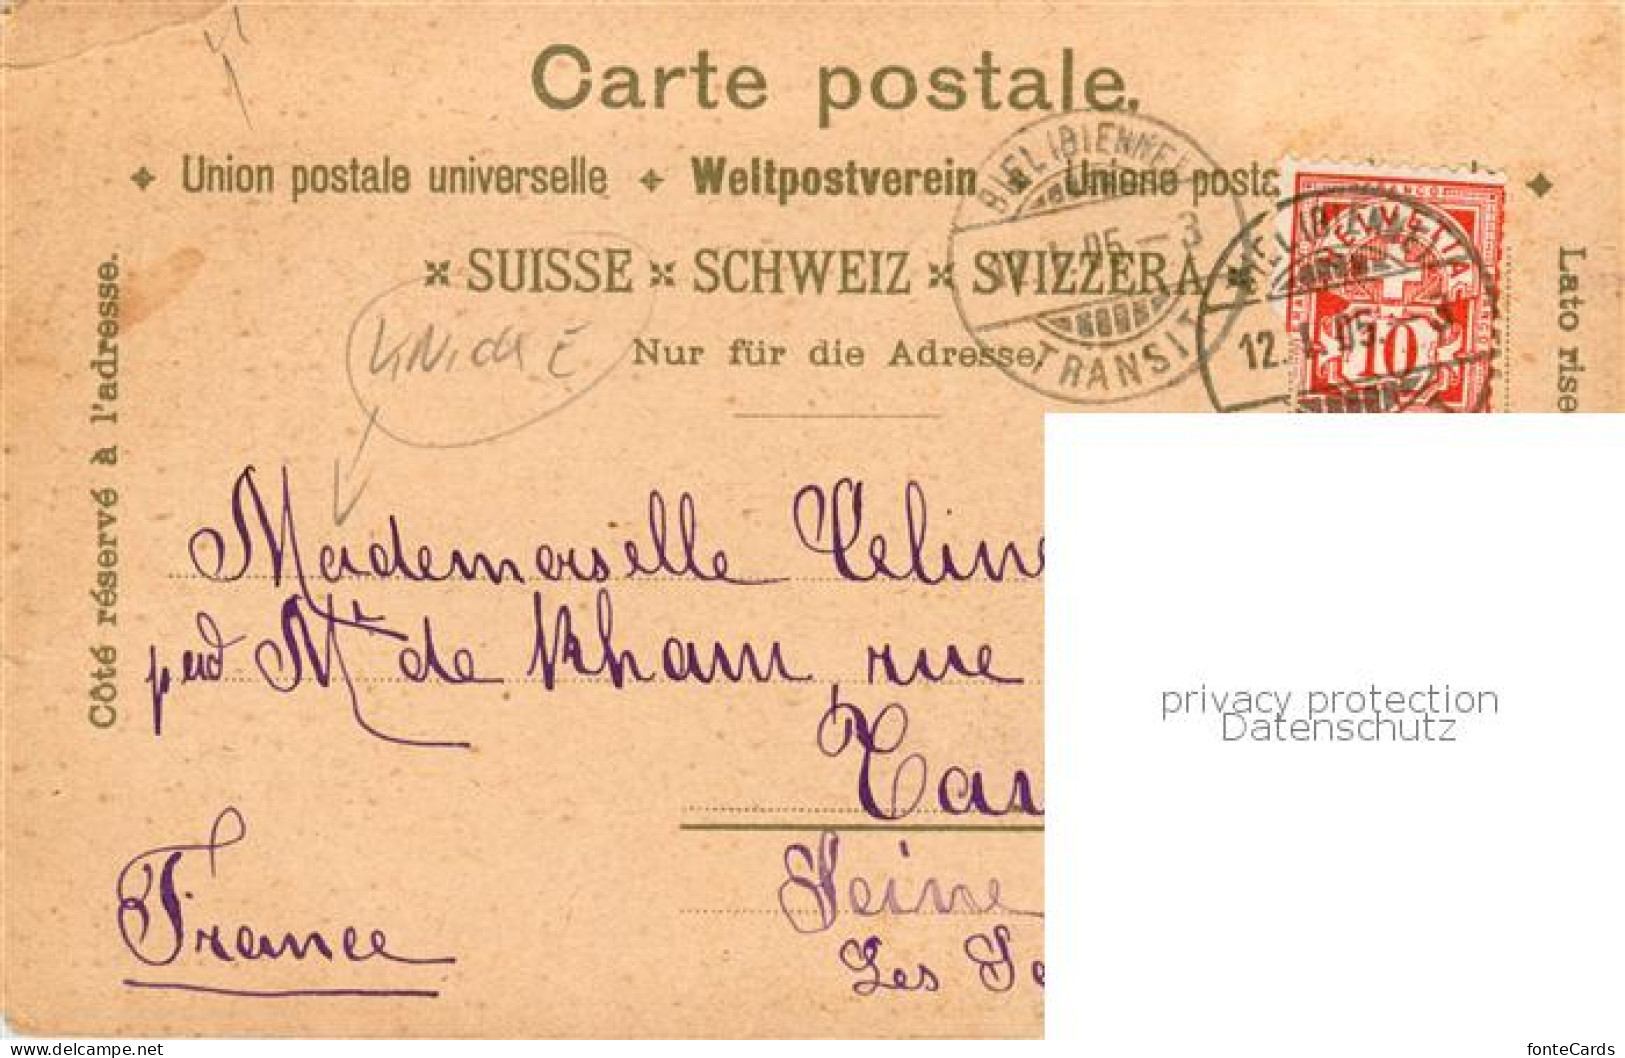 Carte postale.
Union postale universelle Weltpostverein Unione posta
SUISSE SCHWEIZ SVIZZERA
Nur für die Adresse
Côté réservé à l'adresse.
Lato rise
BIEL (BIENNE)
05 - 3
TRANSIT
HELVETIA
FRANCO
10
12. I. 05. - 3
Mademoiselle Celine
Mr de Kham, rue
Seine
Les
France
privacy protection
Datenschutz
www.delcampe.net
fonteCards